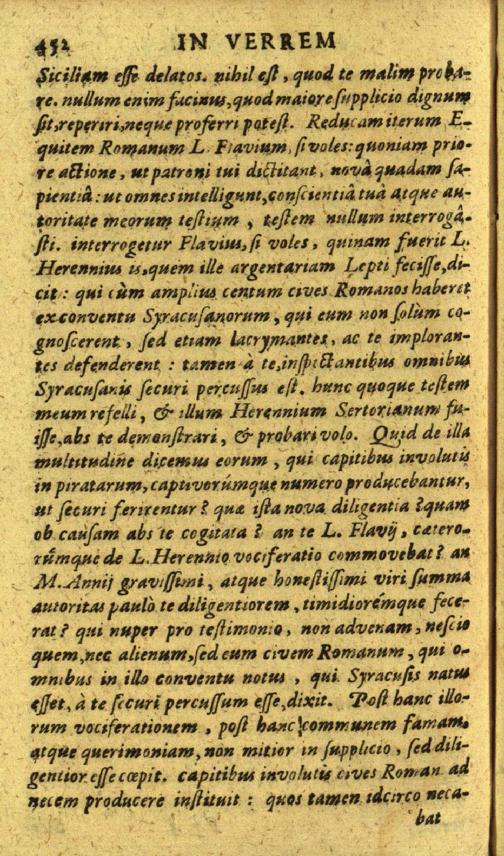 452 IN VERREM
Siciliam esse delatos. nihil est, quod te malim proba-
re. nullum enim facinus, quod maiore supplicio dignum
sit, reperiri, neque proferri potest. Reducam iterum E-
quitem Romanum L. Flavium, si voles: quoniam prio-
re actione, ut patroni tui dictitant, novâ quadam sa-
pientiâ: ut omnes intelligunt, conscientiâ tuâ atque au-
toritate meorum testium, testem nullum interrogâ-
sti. interrogetur Flavius, si voles, quinam fuerit L.
Herennius is, quem ille argentariam Lepti fecisse, di-
cit: qui cùm amplius centum cives Romanos haberet
ex conventu Syracusanorum, qui eum non solùm co-
gnoscerent, sed etiam lacrymantes, ac te imploran-
tes defenderent: tamen à te, inspectantibus omnibus
Syracusanis securi percussus est. hunc quoque testem
meum refelli, & illum Herennium Sertorianum fu-
isse, abs te demonstrari, & probari volo. Quid de illa
multitudine dicemus eorum, qui capitibus involutis
in piratarum, captivorúmque numero producebantur,
ut securi ferirentur? quæ ista nova diligentia? quam
ob causam abs te cogitata? an te L. Flavij, cætero-
rúmque de L. Herennio vociferatio commovebat? an
M. Annij gravissimi, atque honestissimi viri summa
autoritas paulò te diligentiorem, timidiorémque fece-
rat? qui nuper pro testimonio, non advenam, nescio
quem, nec alienum, sed eum civem Romanum, qui o-
mnibus in illo conventu notus, qui Syracusis natus
esset, à te securi percussum esse, dixit. Post hanc illo-
rum vociferationem, post hanc communem famam,
atque querimoniam, non mitior in supplicio, sed dili-
gentior esse cœpit. capitibus involutis cives Roman ad
necem producere instituit: quos tamen idcirco neca-
bat